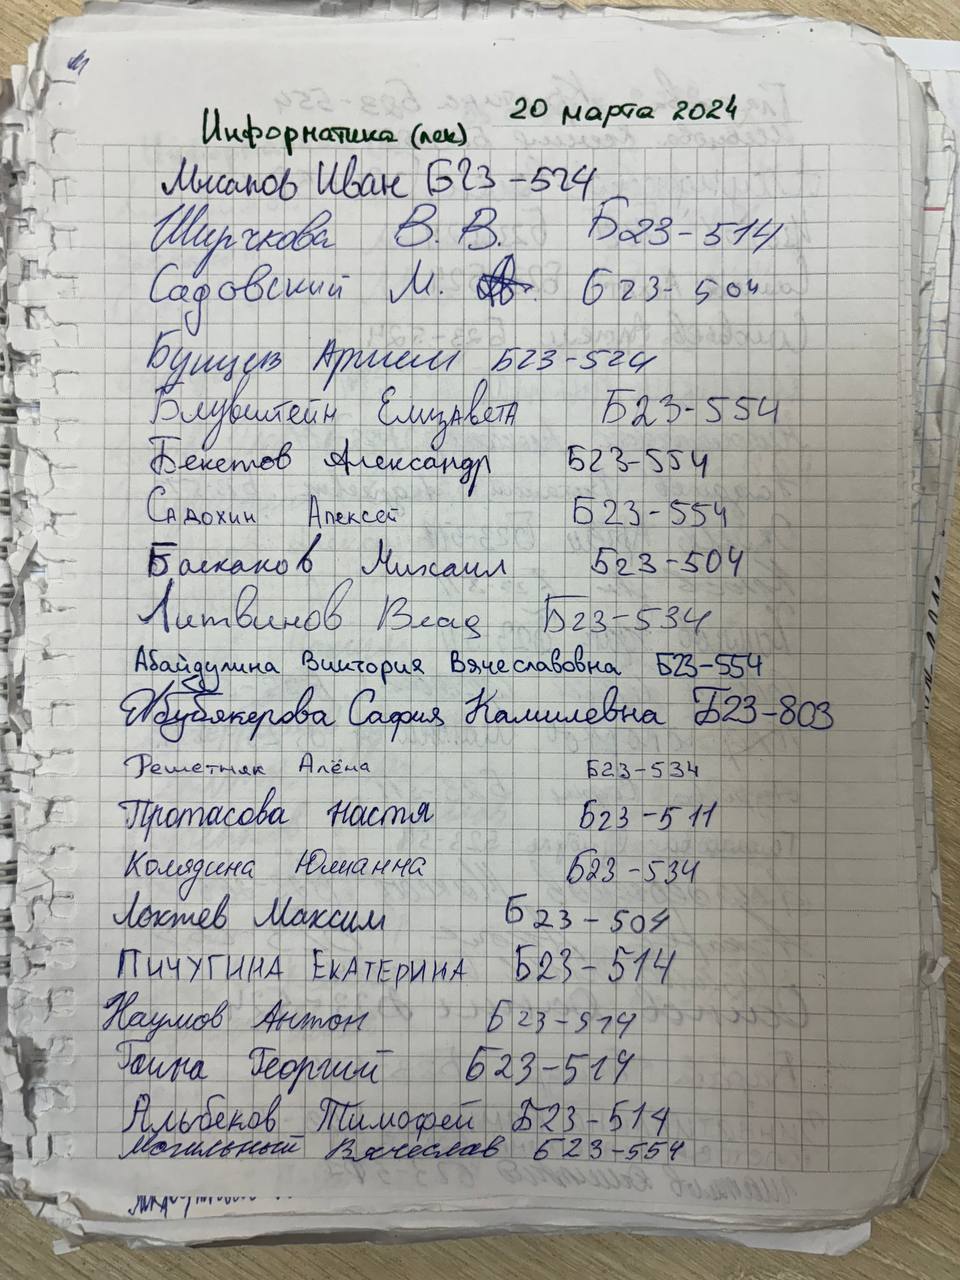 20 марта 2024
Информатика (лек)
Мысапов Иван Б23-524
Ширчкова В. В. Б23-514
Садовский М. Б23-504
Бущев Артем Б23-524
Блувштейн Елизавета Б23-554
Бекетов Александр Б23-554
Садохин Алексей Б23-554
Баскаков Михаил Б23-504
Литвинов Влад Б23-534
Абайдулина Виктория Вячеславовна Б23-554
Абубякерова Сафия Камилевна Б23-803
Решетняк Алёна Б23-534
Протасова Настя Б23-511
Колядина Юлианна Б23-534
Локтев Максим Б23-504
Пичугина Екатерина Б23-514
Наумов Антон Б23-514
Гаина Георгий Б23-514
Альбеков Тимофей Б23-514
Могильный Вячеслав Б23-554